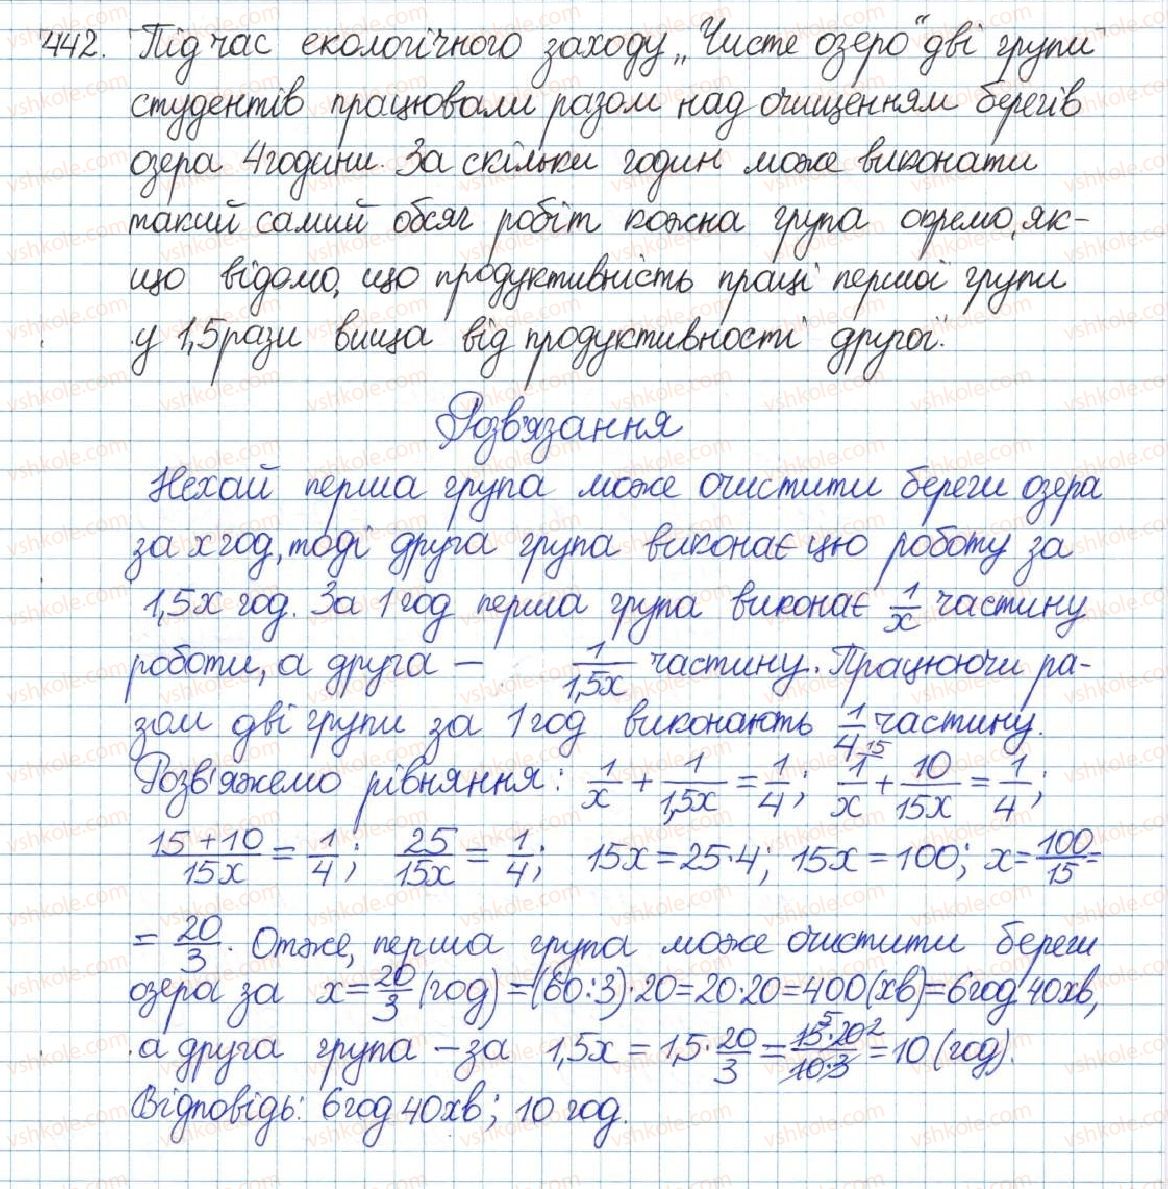 442. Під час екологічного заходу „Чисте озеро“ дві групи
студентів працювали разом над очищенням берегів
озера 4 години. За скільки годин може виконати
такий самий обсяг робіт кожна група окремо, як-
що відомо, що продуктивність праці першої групи
у 1,5 рази вища від продуктивності другої.
Розв'язання
Нехай перша група може очистити береги озера
за x год, тоді друга група виконає цю роботу за
1,5x год. За 1 год перша група виконає 1/x частину
роботи, а друга – 1/1,5x частину. Працюючи ра-
зом дві групи за 1 год виконають 1/4 частину.
Розв'яжемо рівняння: 1/x + 1/1,5x = 1/4; 1/x ^15 + 10/15x = 1/4;
15+10/15x = 1/4; 25/15x = 1/4; 15x = 25·4; 15x = 100; x = 100/15 =
= 20/3. Отже, перша група може очистити береги
озера за x = 20/3 (год) = (60:3)·20 = 20·20 = 400 (хв) = 6 год 40 хв,
а друга група – за 1,5x = 1,5 · 20/3 = 15·20/10·3 = 10 (год).
Відповідь: 6 год 40 хв; 10 год.